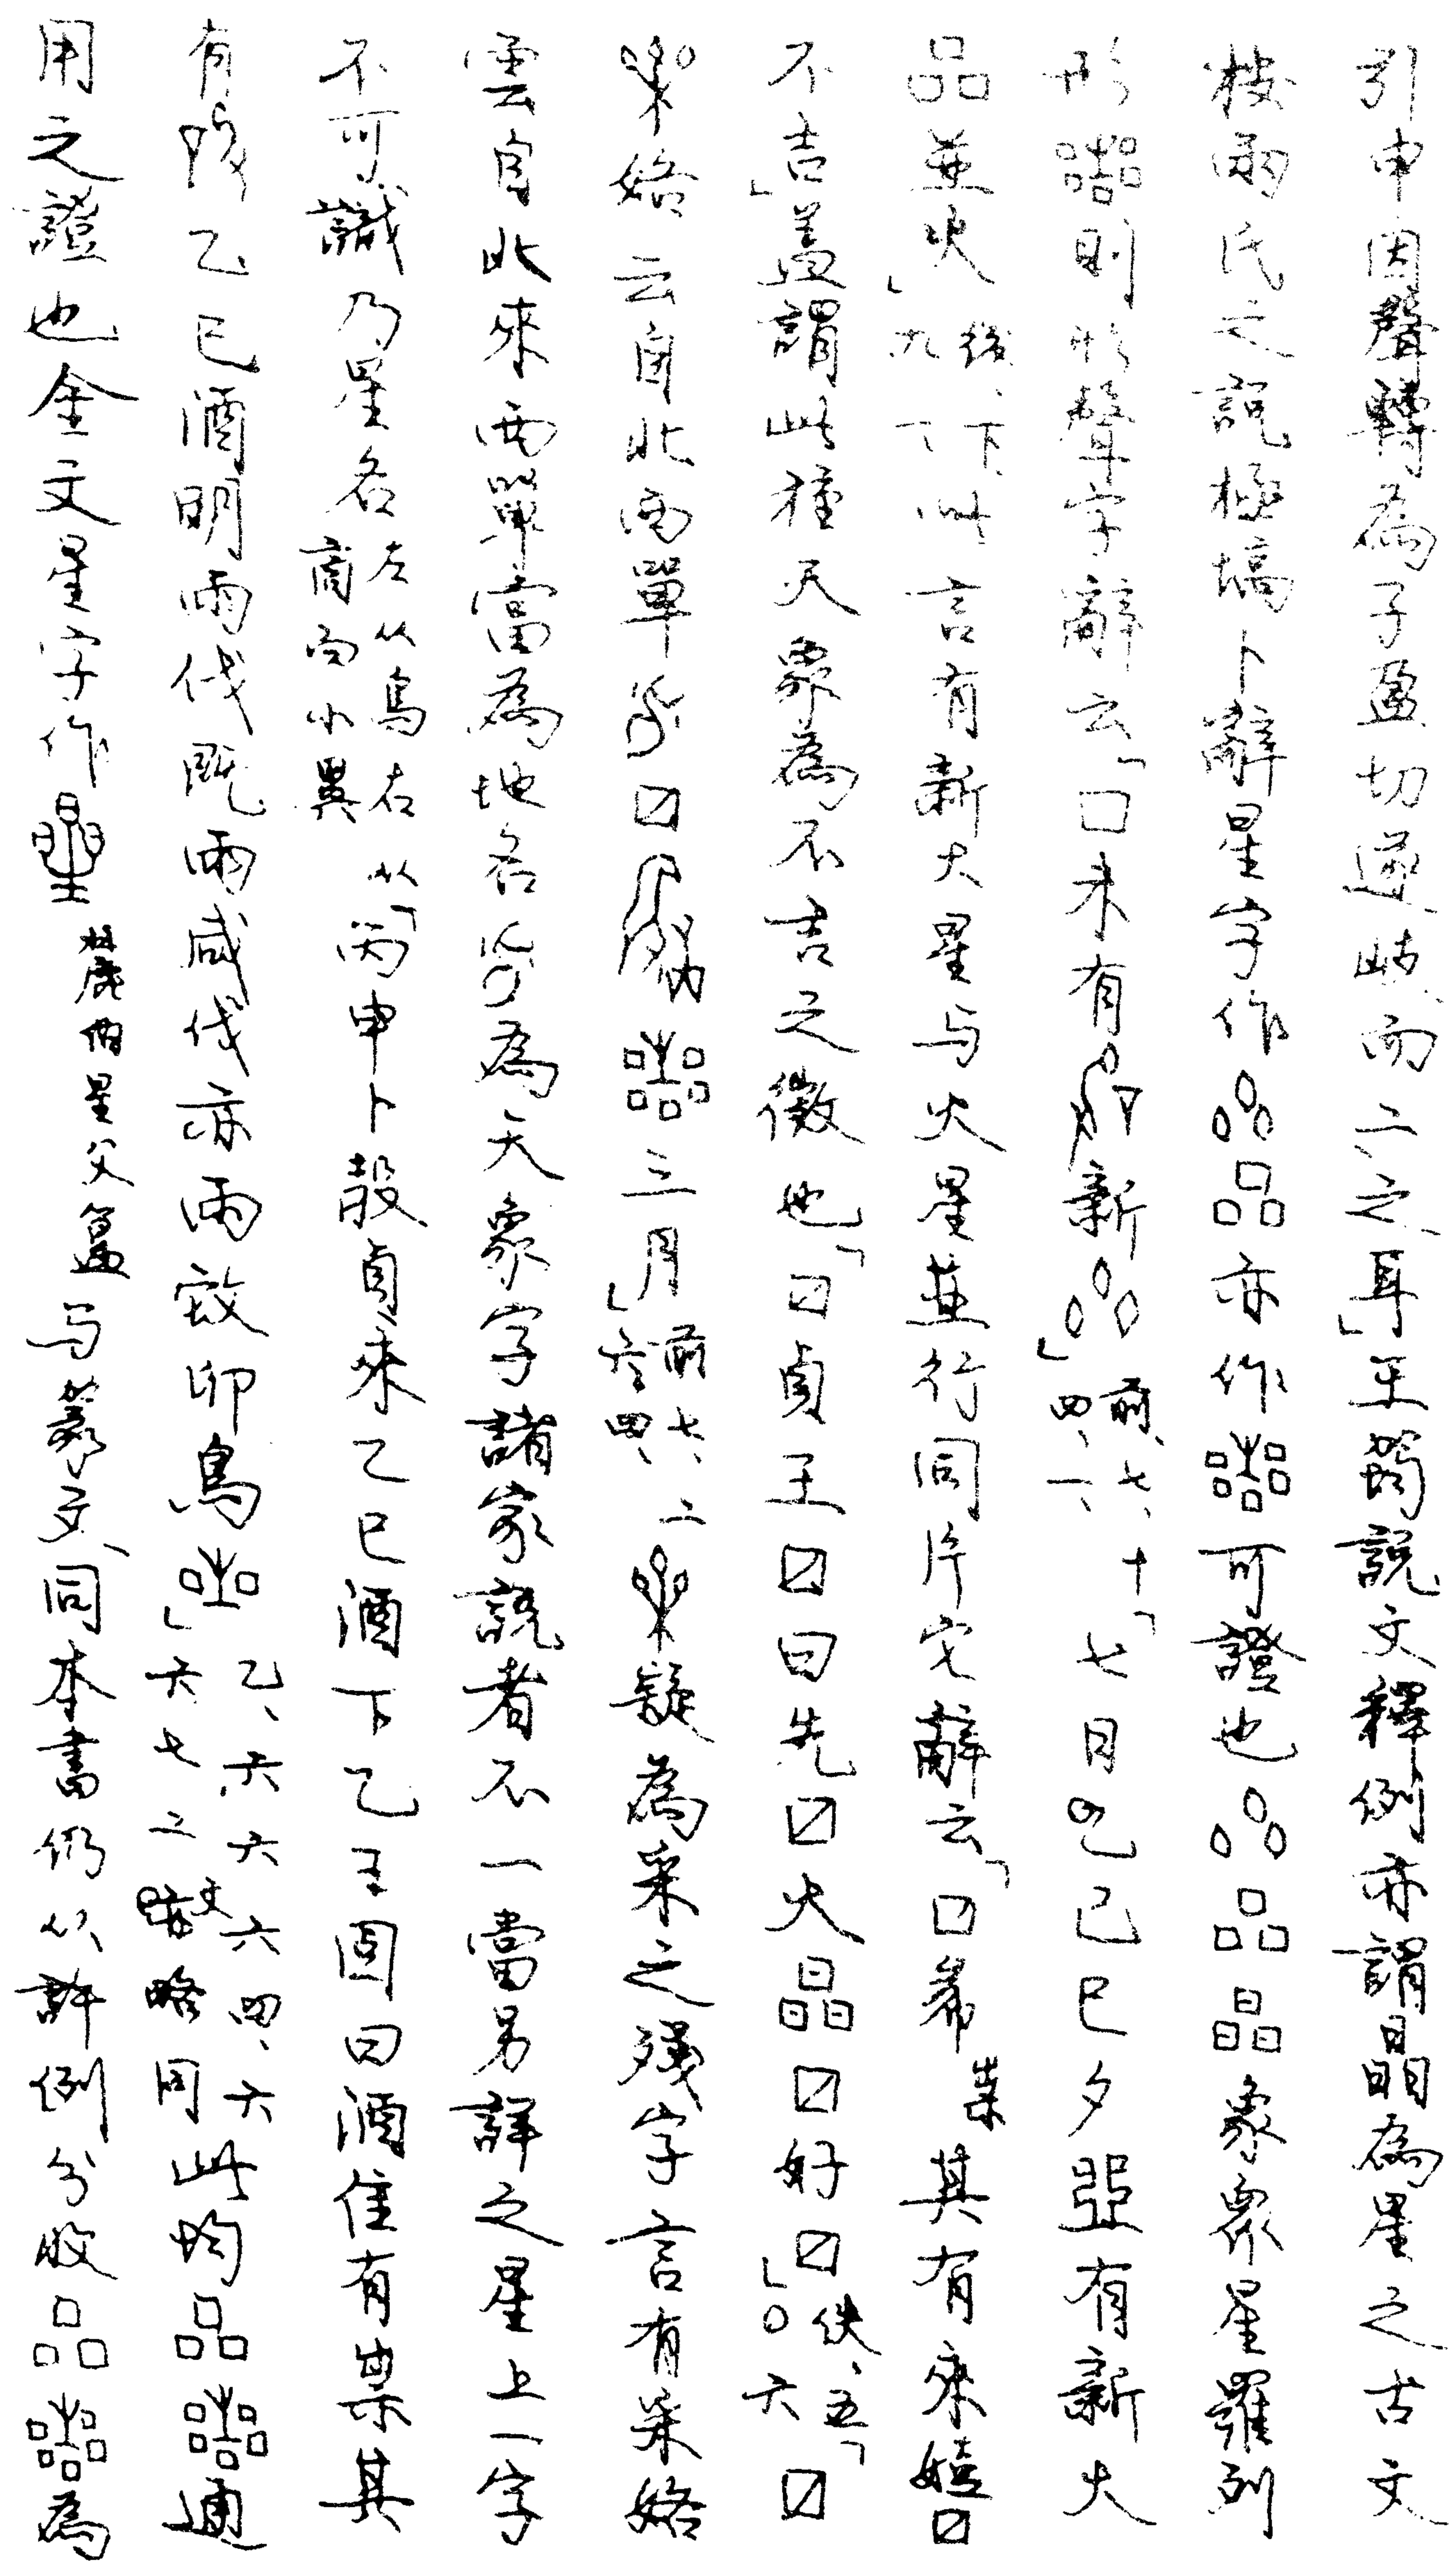 引申因聲轉為子盈切遂歧而二之耳」王筠說文釋例亦謂晶為星之古文
按兩氏之說極塙卜辭星字作品亦作可證也品晶象衆星羅列
形則形聲字辭云「囗未有新」前、七、十四、一、「七日己巳夕有新大
品並火」後、下、九、一、此言有新大星与火星並行同片它辭云「☐希祟其有來嬉☐
不吉」蓋謂此種天象為不吉之徵也「☐貞王☐曰先☐大晶☐好☐」佚、五〇六「☐
始云自北西單☐三月」前七、二六、四、疑為采之殘字言有采始
雲自北來西單當為地名為天象字諸家說者不一當另詳之星上一字
不可識乃星名左从鳥右从商向小異「丙申卜㱿貞來乙巳酒下乙王固曰酒隹有祟其
有乙巳酒明雨伐既雨咸伐亦雨卯鳥」乙、六六六四、六六七二文辭略同此均品通
用之證也金文星字作麓伯星父簋与篆文同本書仍从許例分收品為